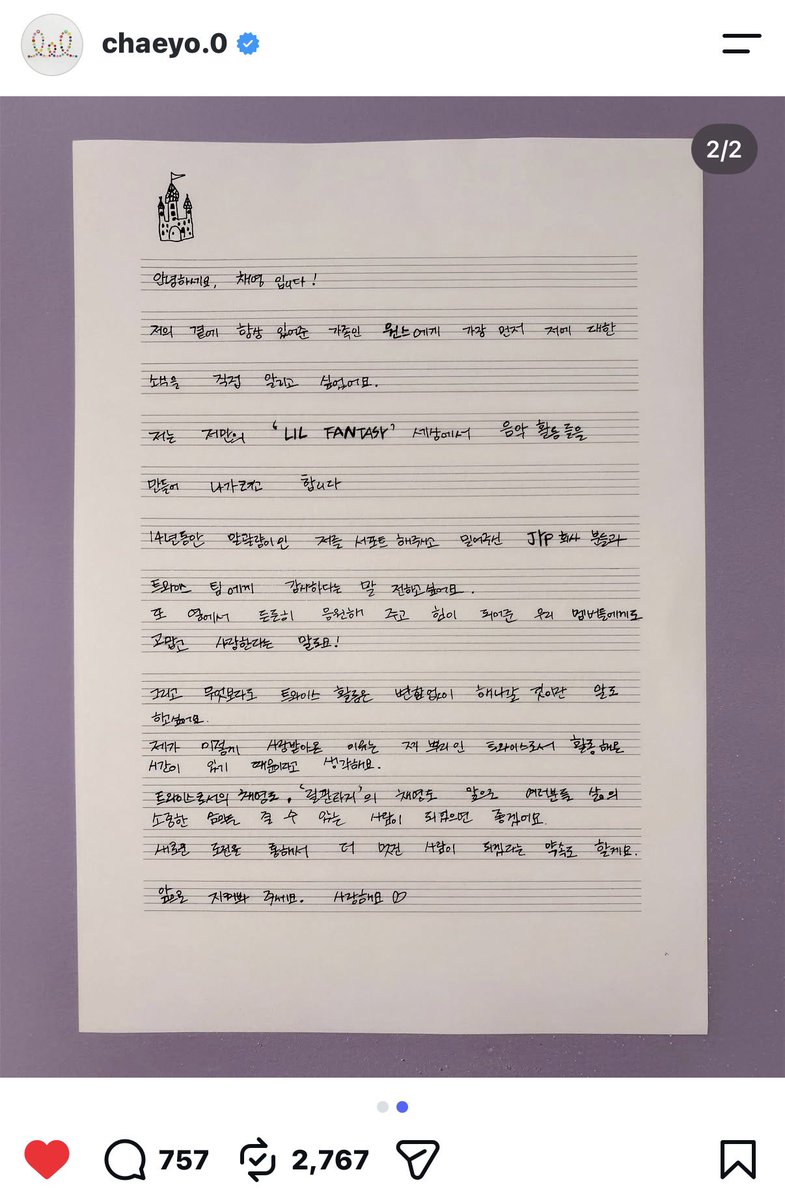 chaeyo.0
2/2
안녕하세요, 채영 입니다!
저의 곁에 항상 있어준 가족인 원스에게 가장 먼저 저에 대한
소식을 직접 알리고 싶었어요.
저는 저만의 'LIL FANTASY' 세상에서 음악 활동들을
만들어 나가려고 합니다
14년동안 말괄량이인 저를 서포트 해주시고 믿어주신 JYP 회사 분들과
트와이스 팀에게 감사하다는 말 전하고싶어요.
또 옆에서 든든히 응원해 주고 힘이 되어준 우리 멤버들에게도
고맙고 사랑한다는 말도요!
그리고 무엇보다도 트와이스 활동은 변함없이 해나갈 것이란 말도
하고싶어요.
제가 이렇게 사랑받아온 이유는 제 뿌리인 트와이스로서 활동해온
시간이 있기 때문이라고 생각해요.
트와이스로서의 채영도, '릴판타지'의 채영도 앞으로 여러분들 삶의
소중한 음악을 줄 수 있는 사람이 되었으면 좋겠어요.
새로운 도전을 통해서 더 멋진 사람이 되겠다는 약속도 할게요.
앞으로 지켜봐 주세요. 사랑해요
757
2,767